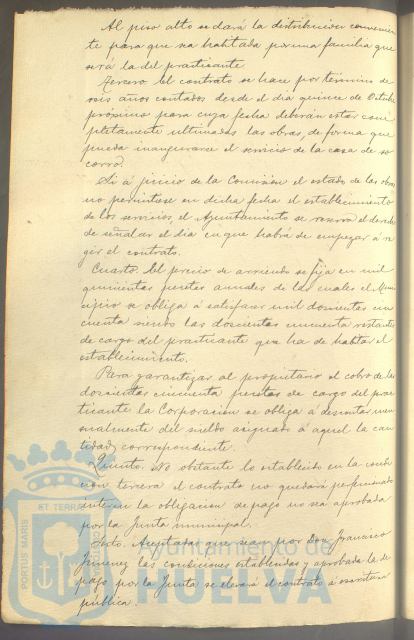 Al piso alto se dará la distribución convenien
te para que sea habitada por una familia que
será la del practicante
Tercero. El contrato se hace por término de
seis años contados desde el dia quince de Octubre
próximo para cuya fecha deberán estar com
pletamente ultimadas las obras, de forma que
pueda inaugurarse el servicio de la casa de so
corro.
Si á juicio de la Comisión el estado de las obras
no permitiese en dicha fecha el establecimiento
de los servicios, el Ayuntamiento se reserva el derecho
de señalar el dia en que habrá de empezar a re
gir el contrato.
Cuarto. El precio de arriendo se fija en mil
quinientas pesetas anuales de las cuales el Muni
cipio se obliga á satisfacer mil doscientas cin
cuenta siendo las doscientas cincuenta restantes
de cargo del practicante que ha de habitar el
establecimiento.
Para garantizar al propietario el cobro de las
doscientas cincuenta pesetas de cargo del prac
ticante la Corporación se obliga á descontar men
sualmente del sueldo asignado á aquel la can
tidad correspondiente.
Quinto. No obstante lo establecido en la condi
ción tercera el contrato no quedará perfeccionado
interin la obligación de pago no sea aprobada
por la Junta municipal.
Sexto. Aceptadas que sean por Don Francisco
Jimenez las condiciones establecidas y aprobada la de
pago por la Junta se elevará el contrato á escritura
pública.
PORTUS MARIS ET TERRAE CUSTODIA
Ayuntamiento de
HUELVA